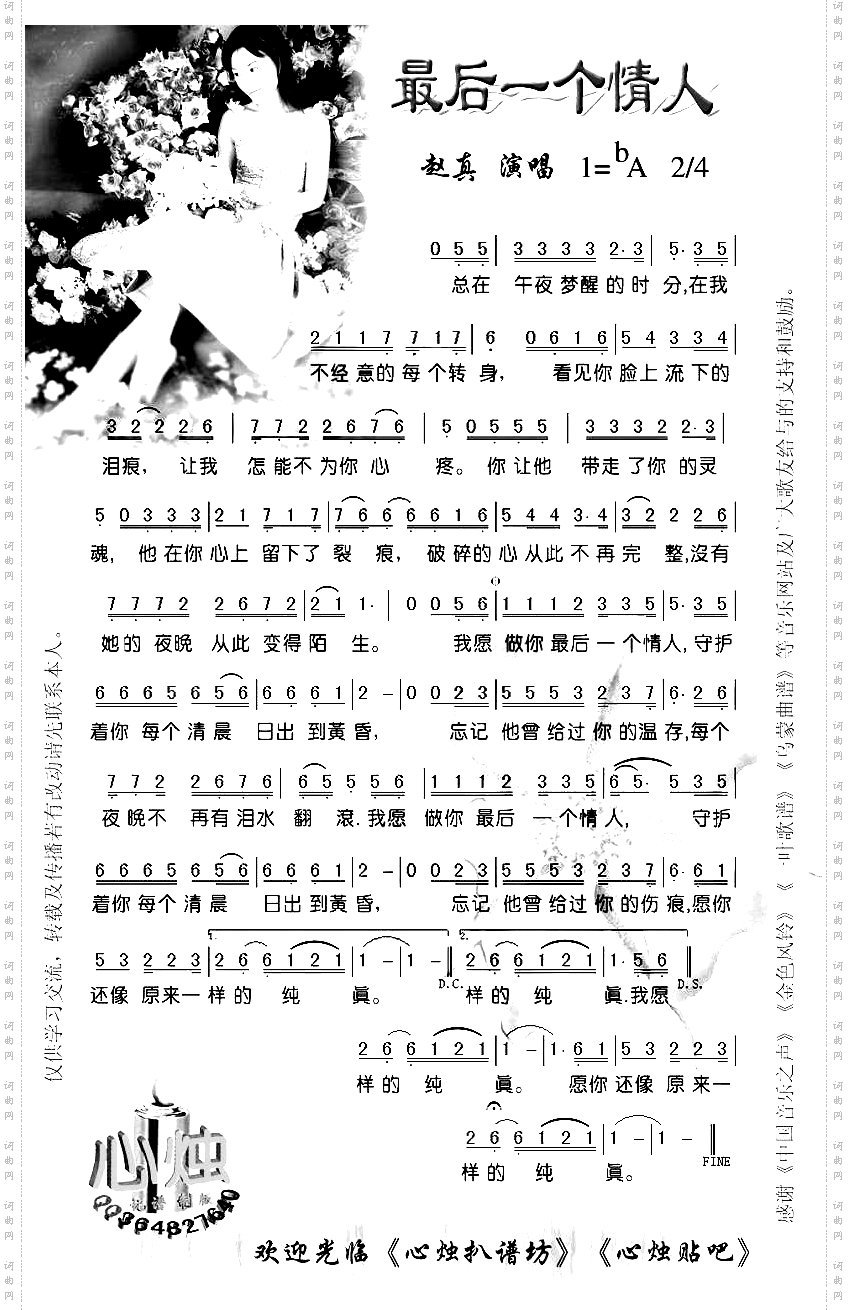 最后一个情人
赵真 演唱 1=bA 2/4
0 5 5 | 3 3 3 3 2· 3 | 5· 3 5
总在 午夜梦醒的时 分,在我
2 1 1 7 7 7 1 7 | 6 0 6 1 6 | 5 4 3 3 4
不经意的每个转 身， 看见你脸上流下的
3 2 2 2 6 | 7 7 2 2 6 7 6 | 5 0 5 5 5 | 3 3 3 2 2· 3
泪痕， 让我 怎能不为你心 疼。你让他 带走了你 的灵
5 0 3 3 3 | 2 1 7 1 7 | 7 6 6 6 6 1 6 | 5 4 4 3· 4 | 3 2 2 2 6
魂, 他在你心上 留下了 裂 痕， 破碎的心从此不再完 整,沒有
7 7 7 2 2 6 7 2 | 2 1 1· 0 0 5 6 | 1 1 1 2 3 3 5 | 5· 3 5
她的 夜晚 从此 变得陌 生。 我愿 做你最后一个情人,守护
6 6 6 5 6 5 6 | 6 6 6 1 | 2 - | 0 0 2 3 | 5 5 5 3 2 3 7 | 6· 2 6
着你 每个清晨 日出 到黃昏， 忘记 他曾给过你的温存,每个
7 7 2 2 6 7 6 | 6 5 5 5 6 | 1 1 1 2 3 3 5 | 6 5· 5 3 5
夜晚不 再有泪水 翻 滾.我愿 做你 最后 一个情人, 守护
6 6 6 5 6 5 6 | 6 6 6 1 | 2 - | 0 0 2 3 | 5 5 5 3 2 3 7 | 6· 6 1
着你每个清晨 日出到黃昏， 忘记 他曾给过你的伤痕,愿你
5 3 2 2 3 | 1. 2 6 6 1 2 1 | 1 - | 1 - | 2. 2 6 6 1 2 1 | 1· 5 6
D.C. D.S.
还像 原来一 样的 纯 眞。 样的 纯 眞.我愿
2 6 6 1 2 1 | 1 - | 1· 6 1 | 5 3 2 2 3
样的 纯 眞。 愿你还像 原来一
2 6 6 1 2 1 | 1 - | 1 -
FINE
样的 纯 眞。
仅供学习交流，转载及传播若有改动请先联系本人。
感谢《中国音乐之声》《金色风铃》《一叶歌谱》《乌蒙曲谱》等音乐网站及广大歌友给与的支持和鼓励。
心烛
QQ364827640
欢迎光临《心烛扒谱坊》《心烛贴吧》
词曲网